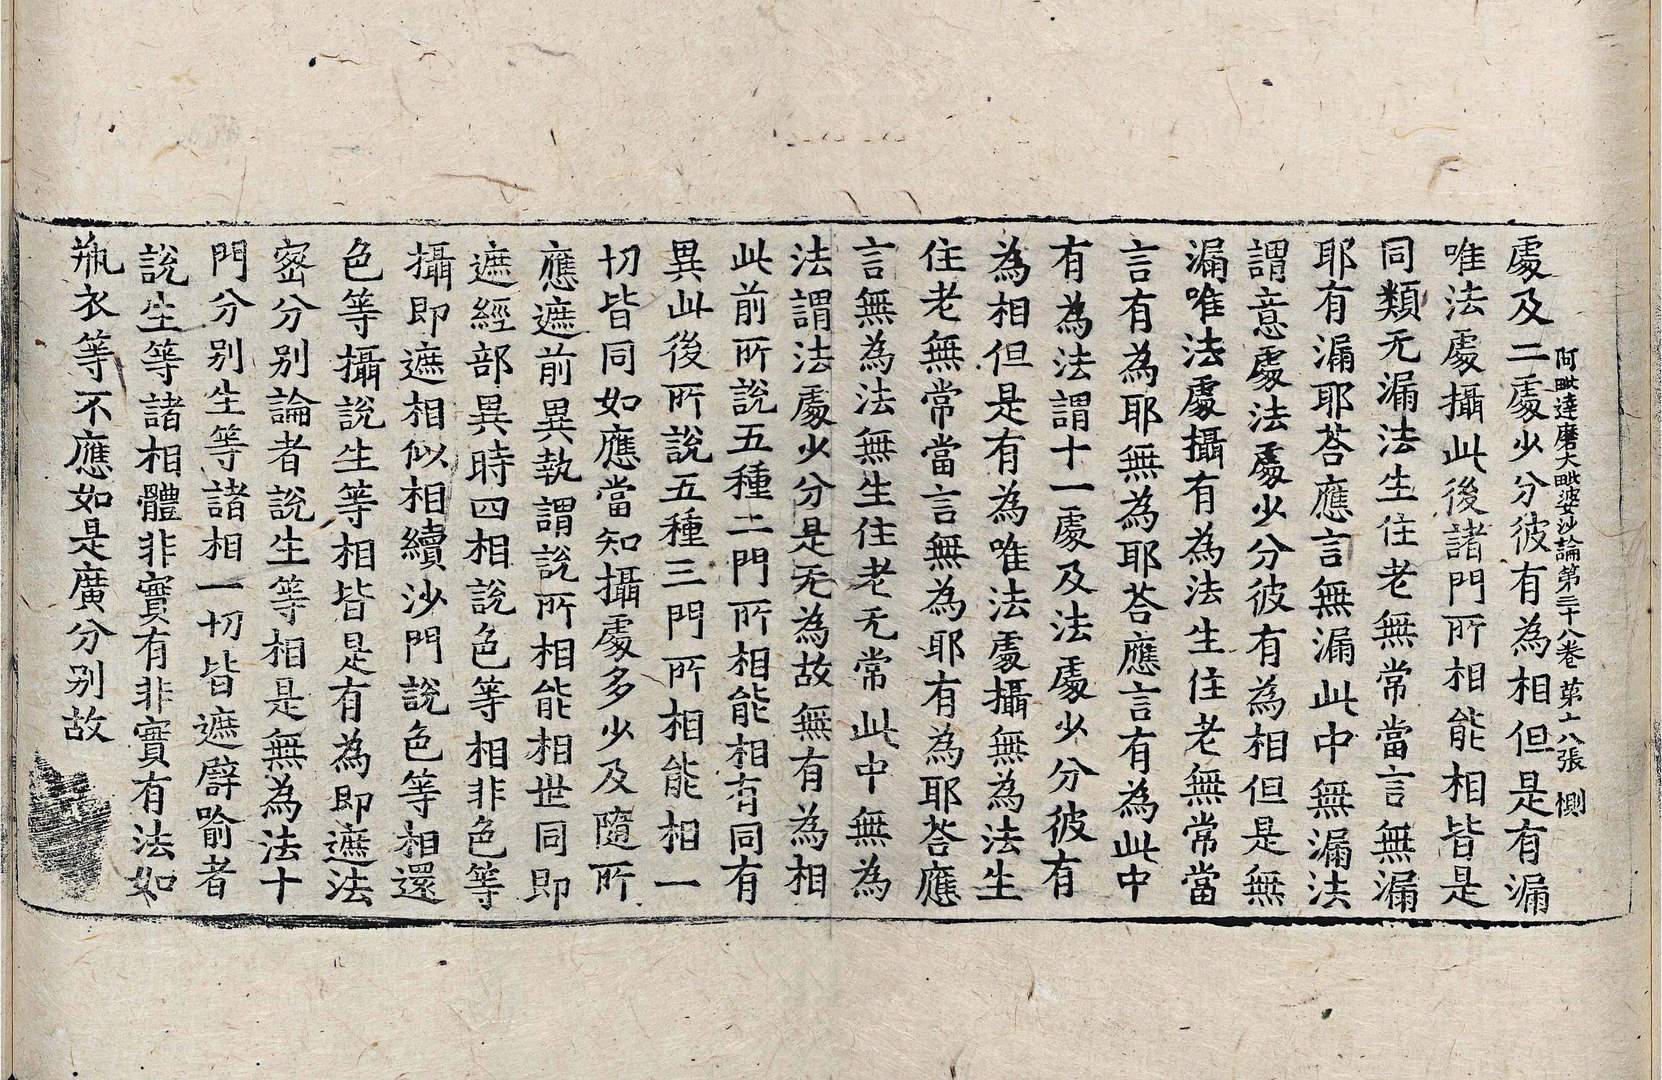 阿毗達磨大毗婆沙論第三十八卷 第十八張 惻
處及二處少分彼有為相但是有漏
唯法處攝此後諸門所相能相皆是
同類无漏法生住老無常當言無漏
耶有漏耶荅應言無漏此中無漏法
謂意處法處少分彼有為相但是無
漏唯法處攝有為法生住老無常當
言有為耶無為耶荅應言有為此中
有為法謂十一處及法處少分彼有
為相但是有為唯法處攝無為法生
住老無常當言無為耶有為耶荅應
言無為法無生住老无常此中無為
法謂法處少分是无為故無有為相
此前所說五種二門所相能相有同有
異此後所說五種三門所相能相一
切皆同如應當知攝處多少及隨所
應遮前異執謂說所相能相世同即
遮經部異時四相說色等相非色等
攝即遮相似相續沙門說色等相還
色等攝說生等相皆是有為即遮法
密分别論者說生等相是無為法十
門分别生等諸相一切皆遮譬喻者
說生等諸相體非實有非實有法如
瓶衣等不應如是廣分别故